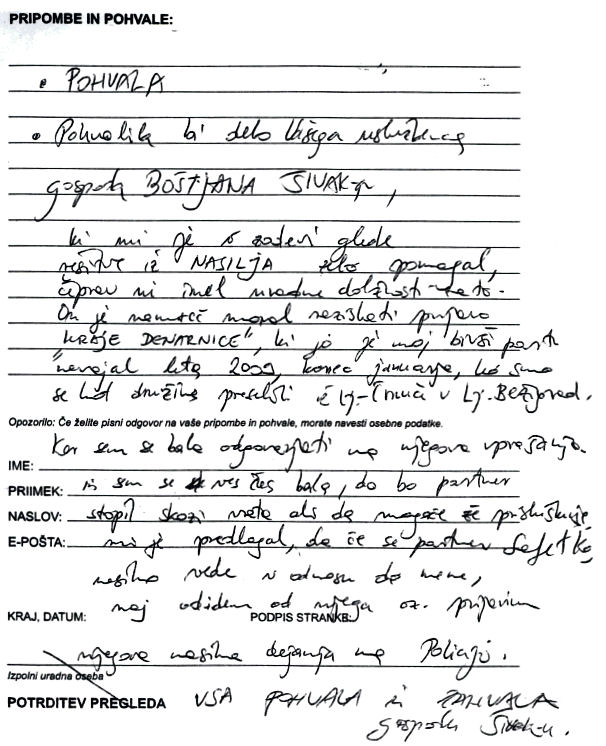 PRIPOMBE IN POHVALE:
• POHVALA
• Pohvalila bi delo Vašega uslužbenca
gospoda BOŠTJANA ŠIVAK-a,
ki mi je v zadevi glede
rešitve iz NASILJA zelo pomagal,
čiprav ni imel uradne dolžnosti zato.
On je namreč moral raziskati prijavo
KRAJE DENARNICE", ki jo je moj bivši partn
leta 2009, konec januarja, ko smo
se kot družina preselili iz Lj-Črnuč v Lj. Bežigrad.
Opozorilo: Če želite pisni odgovor na vaše pripombe in pohvale, morate navesti osebne podatke.
Ker sem se bala odgovarjati na njegova vprašanja.
IME:
PRIIMEK: in sem se ves čas bala, da bo partner
NASLOV: stopil skozi vrata ali da mogoče že prisluškuje,
E-POŠTA: mi je predlagal, da če se partner
nasilno vede v odnosu do mene,
KRAJ, DATUM: naj odidem od njega oz. prijavim
PODPIS STRANKE:
njegova nasilna dejanja na Policijo.
Izpolni uradna oseba
POTRDITEV PREGLEDA VSA POHVALA in ZAHVALA
gospodu Šivak-u.